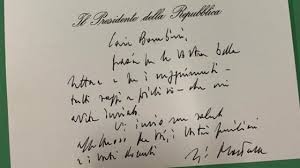 Il Presidente della Repubblica
Cari Bambini,
grazie per la vostra bella
lettera e per i suggerimenti -
tutti saggi e positivi - che mi
avete inviato.
Vi invio un saluto
affettuoso per voi, i vostri familiari
e i vostri docenti